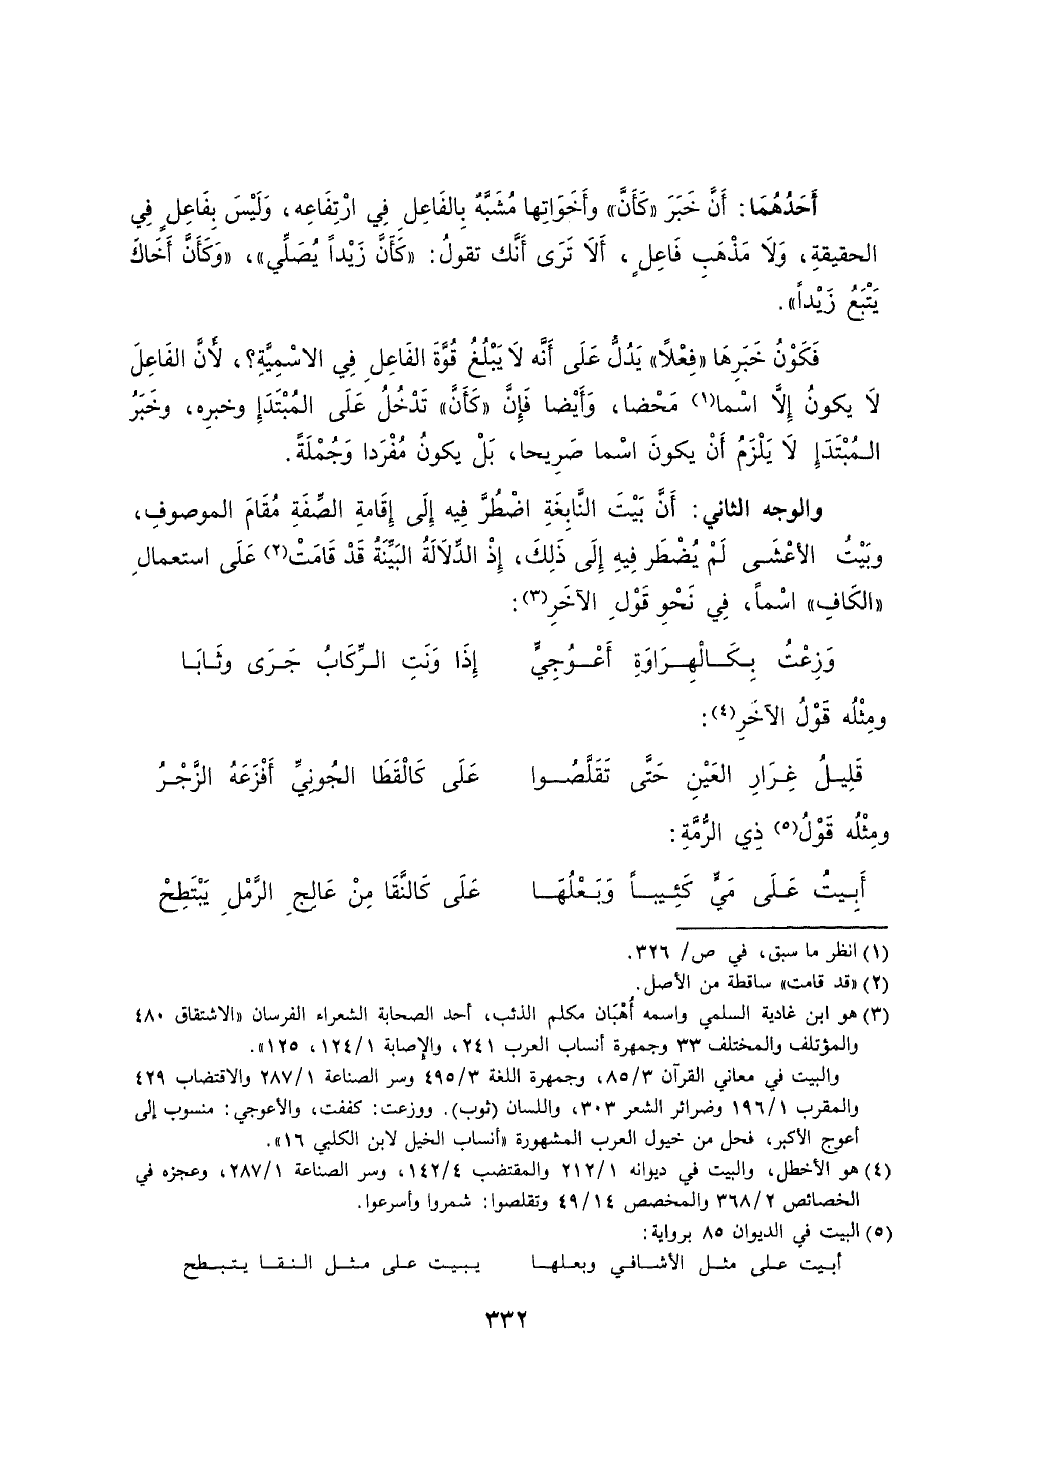 أَحَدُهُمَا: أَنَّ خَبَرَ «كَأَنَّ» وأَخَوَاتِها مُشَبَّهٌ بِالفَاعِلِ فِي ارْتِفَاعِه، وَلَيْسَ بِفَاعِلٍ فِي
الحقيقةِ، وَلَا مَذْهَبِ فَاعِلٍ، أَلَا تَرَى أَنَّك تقولُ: «كَأَنَّ زَيْداً يُصَلِّي»، «وَكَأَنَّ أَخَاكَ
يَتْبَعُ زَيْداً».
فَكَوْنُ خَبَرِهَا «فِعْلاً» يَدُلُّ عَلَى أَنَّه لَا يَبْلُغُ قُوَّةَ الفَاعِلِ فِي الاسْمِيَّةِ؟، لأَنَّ الفَاعِلَ
لَا يكونُ إِلَّا اسْما(١) مَحْضا، وَأَيْضا فَإِنَّ «كَأَنَّ» تَدْخُلُ عَلَى المُبْتَدَإِ وخبرِه، وخَبَرُ
المُبْتَدَإِ لَا يَلْزَمُ أَنْ يكونَ اسْما صَرِيحا، بَلْ يكونُ مُفْرَدا وَجُمْلَةً.
والوجه الثاني: أَنَّ بَيْتَ النَّابِغَةِ اضْطُرَّ فِيه إِلَى إِقَامةِ الصِّفَةِ مُقَامَ الموصوفِ،
وبَيْتُ الأعْشَى لَمْ يُضْطَر فِيهِ إِلَى ذَلِكَ، إِذْ الدِّلَالَةُ البَيِّنَةُ قَدْ قَامَتْ(٢) عَلَى استعمالِ
«الكَافِ» اسْماً، فِي نَحْوِ قَوْلِ الآخَرِ(٣):
وَزِعْتُ بِكَالْهِرَاوَةِ أَعْوُجِيٍّ إِذَا وَنَتِ الرِّكَابُ جَرَى وثَابَا
ومِثْلُه قَوْلُ الآخَرِ(٤):
قَلِيلُ غِرَارِ العَيْنِ حَتَّى تَقَلَّصُوا عَلَى كَالْقَطَا الجُونِيِّ أَفْزَعَهُ الزَّجْرُ
ومِثْلُه قَوْلُ(٥) ذِي الرُّمَّةِ:
أَبِيتُ عَلَى مَيٍّ كَئِيباً وَبَعْلُهَا عَلَى كَالنَّقَا مِنْ عَالِجِ الرَّمْلِ يَبْتَطِحْ
(١) انظر ما سبق، في ص/ ٣٢٦.
(٢) «قد قامت» ساقطة من الأصل.
(٣) هو ابن غادية السلمي واسمه أُهْبَان مكلم الذئب، أحد الصحابة الشعراء الفرسان «الاشتقاق ٤٨٠
والمؤتلف والمختلف ٣٣ وجمهرة أنساب العرب ٢٤١، والإصابة ١/ ١٢٤، ١٢٥».
والبيت في معاني القرآن ٣/ ٨٥، وجمهرة اللغة ٣/ ٤٩٥ وسر الصناعة ١/ ٢٨٧ والاقتضاب ٤٢٩
والمقرب ١/ ١٩٦ وضرائر الشعر ٣٠٣، واللسان (ثوب). ووزعت: كففت، والأعوجي: منسوب إلى
أعوج الأكبر، فحل من خيول العرب المشهورة «أنساب الخيل لابن الكلبي ١٦».
(٤) هو الأخطل، والبيت في ديوانه ١/ ٢١٢ والمقتضب ٤/ ١٤٢، وسر الصناعة ١/ ٢٨٧، وعجزه في
الخصائص ٢/ ٣٦٨ والمخصص ١٤/ ٤٩ وتقلصوا: شمروا وأسرعوا.
(٥) البيت في الديوان ٨٥ برواية:
أبيت على مثل الأشافي وبعلها يبيت على مثل النقا يتبطح
٣٣٢